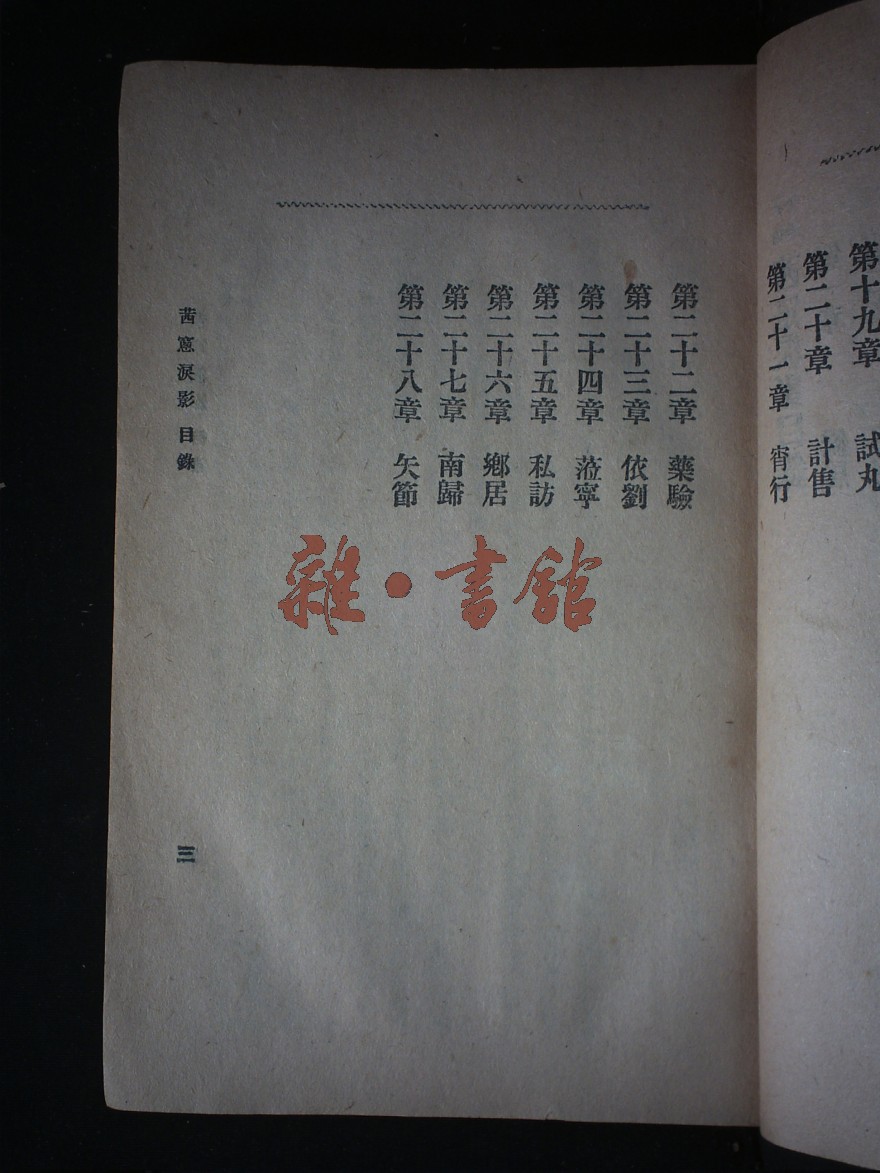 第十九章 試丸
第二十章 計售
第二十一章 宵行
第二十二章 藥驗
第二十三章 依劉
第二十四章 蒞寧
第二十五章 私訪
第二十六章 鄉居
第二十七章 南歸
第二十八章 矢節
茜窻淚影 目錄
三
雜·書館